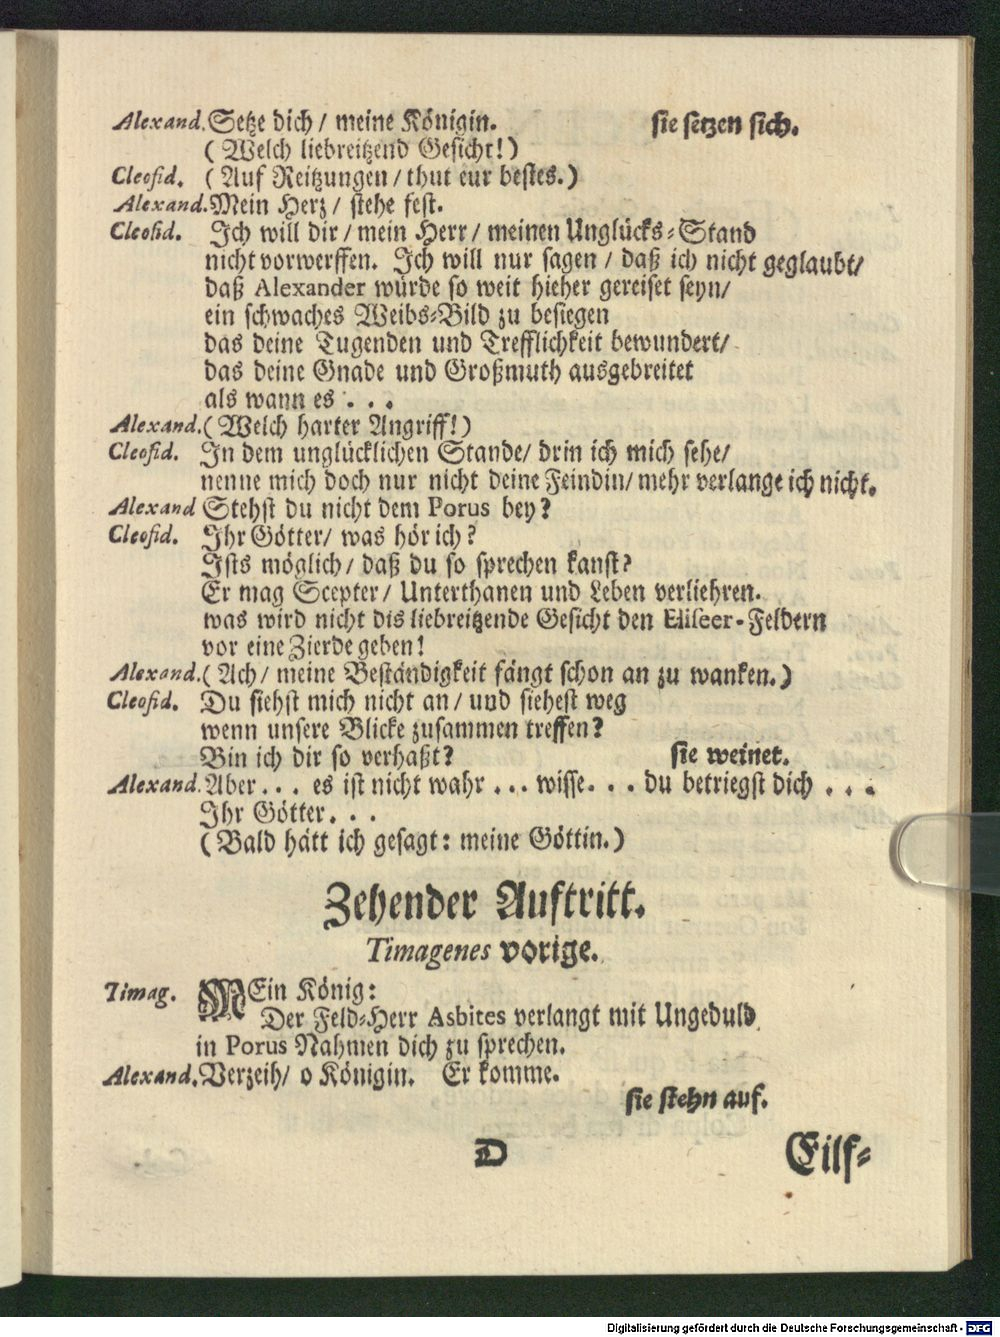 Alexand. Setze dich / meine Königin. sie setzen sich.
( Welch liebreitzend Gesicht!)
Cleofid. ( Auf Reitzungen / thut eur bestes.)
Alexand. Mein Herz / stehe fest.
Cleofid. Ich will dir / mein Herr / meinen Unglücks-Stand
nicht vorwerffen. Ich will nur sagen / daß ich nicht geglaubt/
daß Alexander würde so weit hieher gereiset seyn/
ein schwaches Weibs-Bild zu besiegen
das deine Tugenden und Trefflichkeit bewundert/
das deine Gnade und Großmuth ausgebreitet
als wann es . . .
Alexand. ( Welch harter Angriff!)
Cleofid. In dem unglücklichen Stande/ drin ich mich sehe/
nenne mich doch nur nicht deine Feindin/ mehr verlange ich nicht.
Alexand Stehst du nicht dem Porus bey?
Cleofid. Ihr Götter/ was hör ich?
Ists möglich/ daß du so sprechen kanst?
Er mag Scepter/ Unterthanen und Leben verliehren.
was wird nicht dis liebreitzende Gesicht den Eliseer-Feldern
vor eine Zierde geben!
Alexand. ( Ach/ meine Beständigkeit fängt schon an zu wanken.)
Cleofid. Du siehst mich nicht an/ und siehest weg
wenn unsere Blicke zusammen treffen?
Bin ich dir so verhaßt? sie weinet.
Alexand. Aber . . . es ist nicht wahr . . . wisse. . . du betriegst dich . . .
Ihr Götter. . .
( Bald hätt ich gesagt: meine Göttin.)
Zehender Auftritt.
Timagenes vorige.
Timag. MEin König:
Der Feld-Herr Asbites verlangt mit Ungeduld
in Porus Nahmen dich zu sprechen.
Alexand. Verzeih/ o Königin. Er komme.
sie stehn auf.
D Eilf-
Digitalisierung gefördert durch die Deutsche Forschungsgemeinschaft - DFG